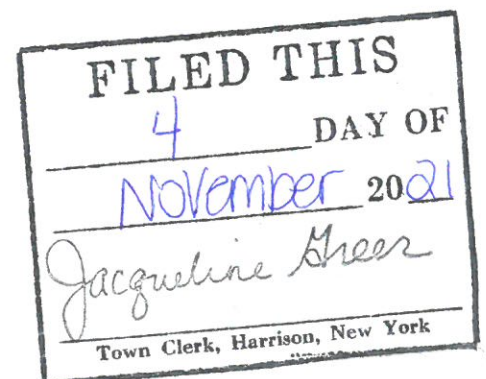 FILED THIS
4 DAY OF
November 2021
Jacqueline Greer
Town Clerk, Harrison, New York